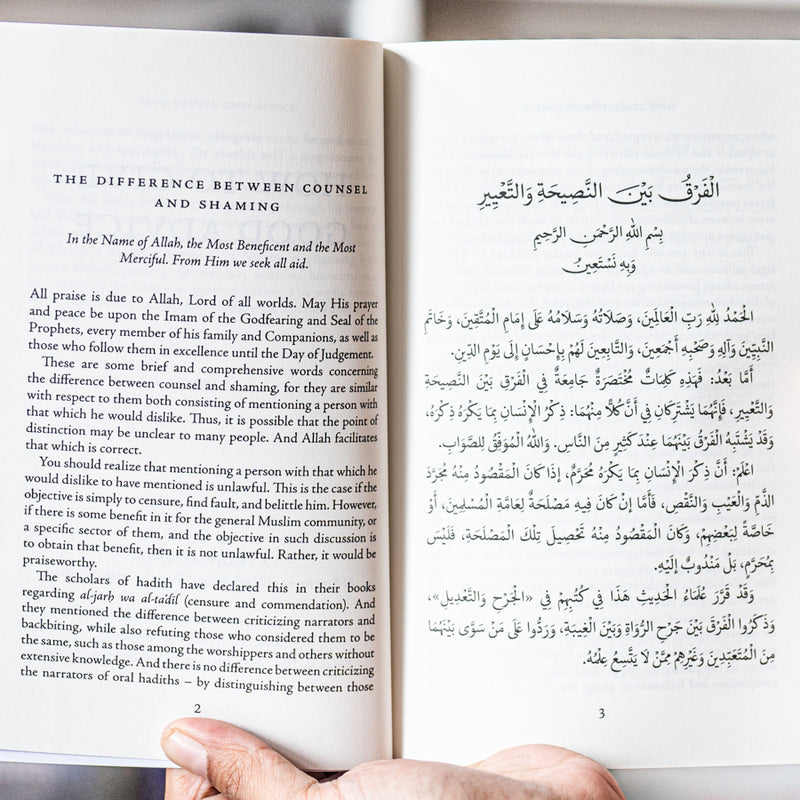 THE DIFFERENCE BETWEEN COUNSEL
AND SHAMING
In the Name of Allah, the Most Beneficent and the Most
Merciful. From Him we seek all aid.
All praise is due to Allah, Lord of all worlds. May His prayer
and peace be upon the Imam of the Godfearing and Seal of the
Prophets, every member of his family and Companions, as well as
those who follow them in excellence until the Day of Judgement.
These are some brief and comprehensive words concerning
the difference between counsel and shaming, for they are similar
with respect to them both consisting of mentioning a person with
that which he would dislike. Thus, it is possible that the point of
distinction may be unclear to many people. And Allah facilitates
that which is correct.
You should realize that mentioning a person with that which he
would dislike to have mentioned is unlawful. This is the case if the
objective is simply to censure, find fault, and belittle him. However,
if there is some benefit in it for the general Muslim community, or
a specific sector of them, and the objective in such discussion is
to obtain that benefit, then it is not unlawful. Rather, it would be
praiseworthy.
The scholars of hadith have declared this in their books
regarding al-jarḥ wa al-ta'dīl (censure and commendation). And
they mentioned the difference between criticizing narrators and
backbiting, while also refuting those who considered them to be
the same, such as those among the worshippers and others without
extensive knowledge. And there is no difference between criticizing
the narrators of oral hadiths – by distinguishing between those
2
الْفَرْقُ بَيْنَ النَّصِيحَةِ وَالتَّعْيِيرِ
بِسْمِ اللهِ الرَّحْمَنِ الرَّحِيمِ
وَبِهِ نَسْتَعِينُ
الْحَمْدُ لِلَّهِ رَبِّ الْعَالَمِينَ، وَصَلَاتُهُ وَسَلَامُهُ عَلَى إِمَامِ الْمُتَّقِينَ، وَخَاتَمِ
النَّبِيِّينَ وَآلِهِ وَصَحْبِهِ أَجْمَعِينَ، وَالتَّابِعِينَ لَهُمْ بِإِحْسَانٍ إِلَى يَوْمِ الدِّينِ.
أَمَّا بَعْدُ: فَهَذِهِ كَلِمَاتٌ مُخْتَصَرَةٌ جَامِعَةٌ فِي الْفَرْقِ بَيْنَ النَّصِيحَةِ
وَالتَّعْيِيرِ، فَإِنَّهُمَا يَشْتَرِكَانِ فِي أَنَّ كُلًّا مِنْهُمَا: ذِكْرُ الْإِنْسَانِ بِمَا يَكْرَهُ ذِكْرَهُ،
وَقَدْ يَشْتَبِهُ الْفَرْقُ بَيْنَهُمَا عِنْدَ كَثِيرٍ مِنَ النَّاسِ. وَاللهُ الْمُوَفِّقُ لِلصَّوَابِ.
اعْلَمْ: أَنَّ ذِكْرَ الْإِنْسَانِ بِمَا يَكْرَهُ مُحَرَّمٌ، إِذَا كَانَ الْمَقْصُودُ مِنْهُ مُجَرَّدَ
الذَّمِّ وَالْعَيْبِ وَالنَّقْصِ، فَأَمَّا إِنْ كَانَ فِيهِ مَصْلَحَةٌ لِعَامَّةِ الْمُسْلِمِينَ، أَوْ
خَاصَّةً لِبَعْضِهِمْ، وَكَانَ الْمَقْصُودُ مِنْهُ تَحْصِيلَ تِلْكَ الْمَصْلَحَةِ، فَلَيْسَ
بِمُحَرَّمٍ، بَلْ مَنْدُوبٌ إِلَيْهِ.
وَقَدْ قَرَّرَ عُلَمَاءُ الْحَدِيثِ هَذَا فِي كُتُبِهِمْ فِي «الْجَرْحِ وَالتَّعْدِيلِ»،
وَذَكَرُوا الْفَرْقَ بَيْنَ جَرْحِ الرُّوَاةِ وَبَيْنَ الْغِيبَةِ، وَرَدُّوا عَلَى مَنْ سَوَّى بَيْنَهُمَا
مِنَ الْمُتَعَبِّدِينَ وَغَيْرِهِمْ مِمَّنْ لَا يَتَّسِعُ عِلْمُهُ.
3